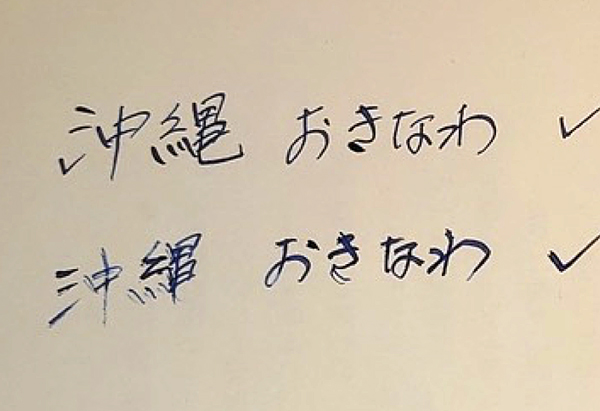 沖縄 おきなわ ✓
沖縄 おきなわ ✓